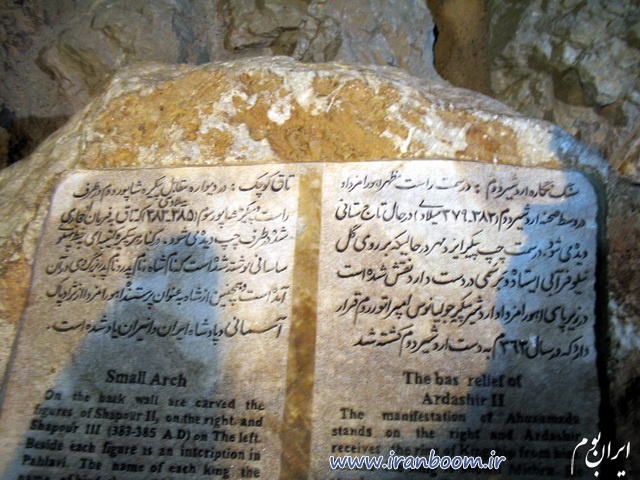 سنگ نگاره اردشیر دوم : در سمت راست مظهر اهورامزدا و
در وسط صحنه اردشیر دوم (۳۸۳ـ۳۷۹ میلادی) در حال تاج ستانی
دیده می شود. در سمت چپ پیکر ایزد مهر در حالیکه بر روی گل
نیلوفر آبی ایستاده و برسمی در دست دارد نقش شده است
در زیر پای اهورامزدا و اردشیر پیکر جولیانوس امپراتور روم قرار
دارد که در سال ۳۶۳ م به دست اردشیر دوم کشته شد
The bas relief of
Ardashir II
The manifestation of Ahuramada
stands on the right and Ardashir
receives the from him
Mithra
تاق کوچک : در دیواره مقابل پیکره شاپور دوم در طرف
راست و پیکره شاپور سوم (۳۸۵ـ۳۸۳ میلادی) که تاق به فرمان او حجاری
شده در طرف چپ دیده می شود. در کنار هر پیکره کتیبه ای به خط پهلوی
ساسانی نوشته شده است که نام شاه، نام پدر و نام پدربزرگ وی در آن
آمده است و همچنین از شاه به عنوان پرستنده اهورامزدا و از نژاد
آسمانی و پادشاه ایران و انیران یاد شده است.
Small Arch
On the back wall are carved the
figures of Shapour II, on the right, and
Shapour III (383-385 A D) on The left.
Beside each figure is an incription in
Pahlavi. The name of each king the
www.iranboom.ir
ایران بوم